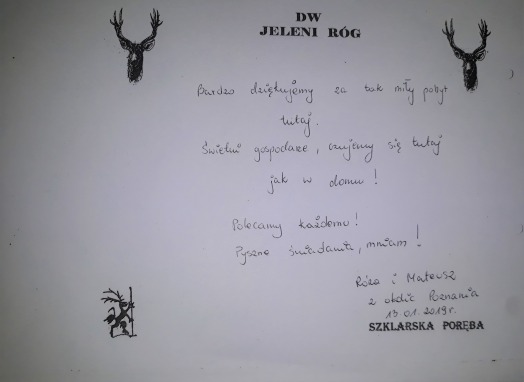 DW
JELENI RÓG
Bardzo dziękujemy za tak miły pobyt
tutaj.
Świetni gospodarze, czujemy się tutaj
jak w domu!
Polecamy każdemu!
Pyszne śniadania, mniam!
Róża i Mateusz
z okolic Poznania
13.01.2019r.
SZKLARSKA PORĘBA